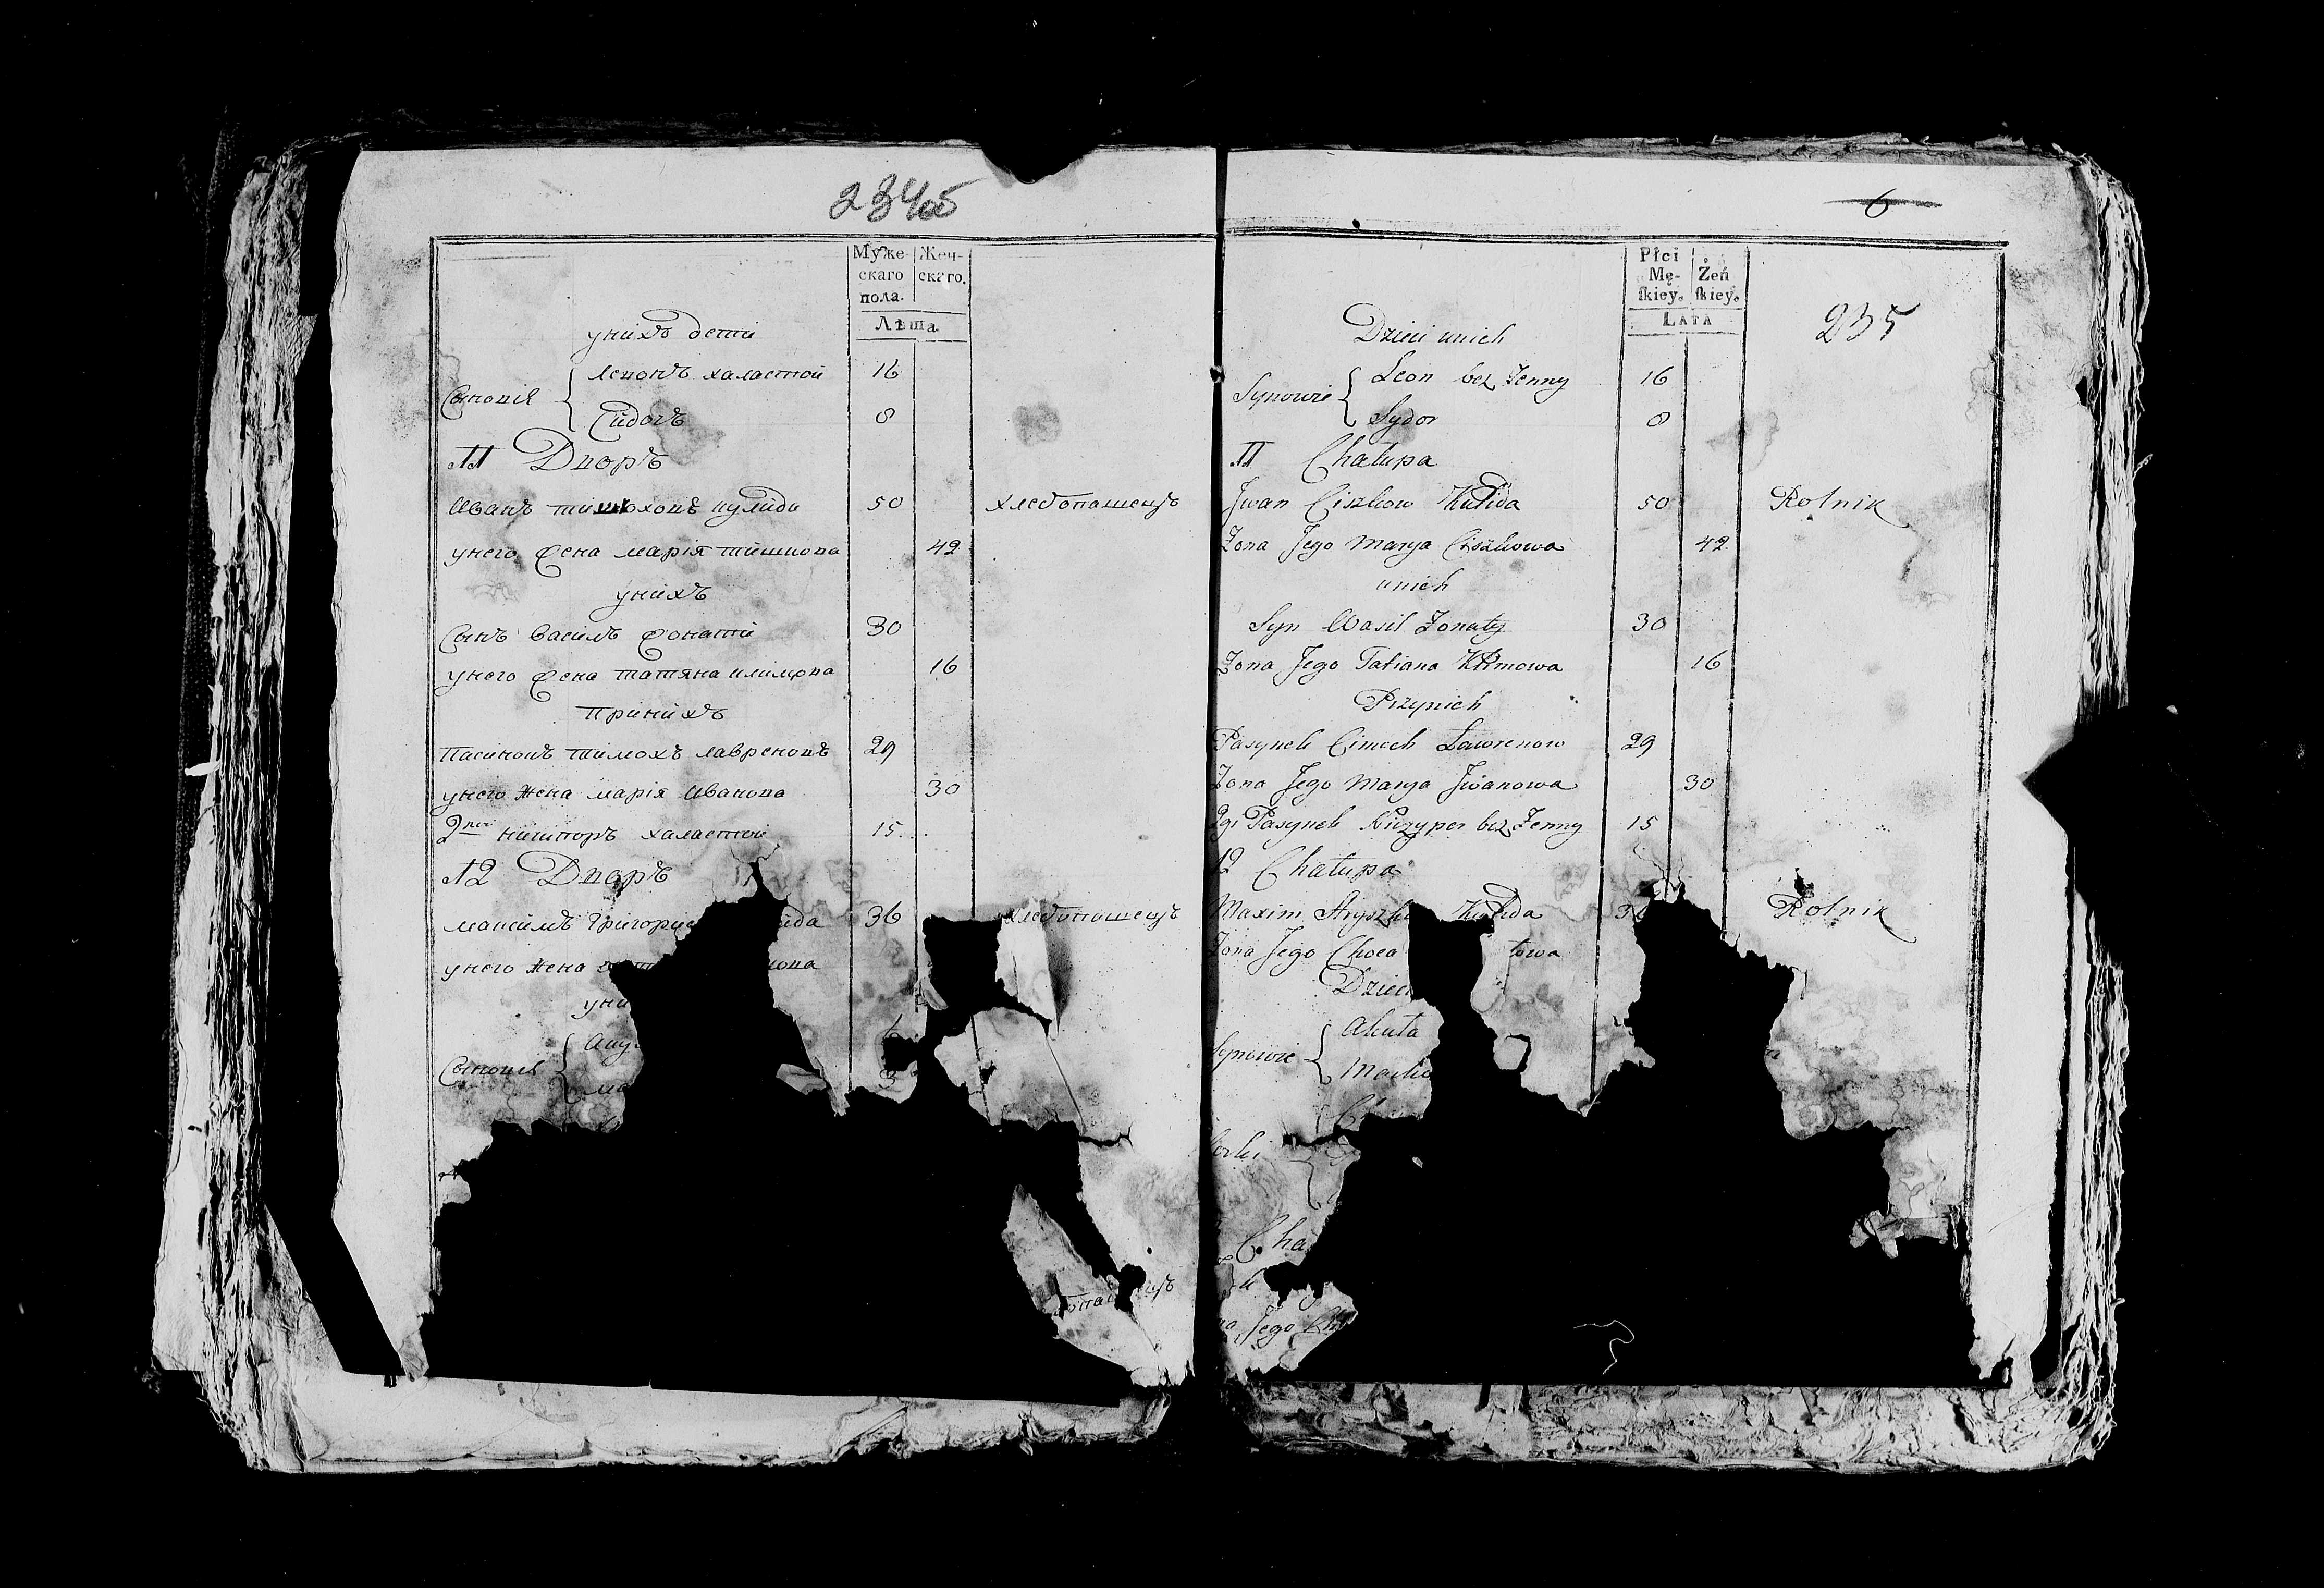 2345
Муже-
скаго
пола.
Жен-
скаго.
Лѣта
унихъ дети
Сыновiя
Леонъ халастой 16
Сидоръ 8
11 Дворъ
Иванъ Кулида 50 хлебопашецъ
унего жена марiя тишкова 42
унихъ
Сынъ василь жонатй 30
унего жена татяна климова 16
принихъ
Пасинокъ тимохъ лавреновъ 29
унего жена марiя Иванова 30
2гой ничипоръ халастой 15
12 Дворъ
максимъ Григорие ида 36 хлебопашецъ
унего жена
уни
Сыновiя
6
Płci
Mę-
skiey.
Żeń
skiey.
LATA
235
Dzieci unich
Synowie
Leon bez Żenny 16
Sydor 8
11 Chałupa
Jwan Ciszkow Kulida 50 Rolnik
Żona Jego Marya Ciszkowa 42
unich
Syn Wasil Żonaty 30
Żona Jego Tatiana Klimowa 16
Przynich
Pasynek Cimoch Ławrenow 29
Żona Jego Marya Jwanowa 30
2gi Pasynek Niczyper bez Żenny 15
12 Chałupa
Maxim Hryszk Kulida 36 Rolnik
Żona Jego towa
Dzieci
Synowie
Akuła
Marko
Cha
Jego